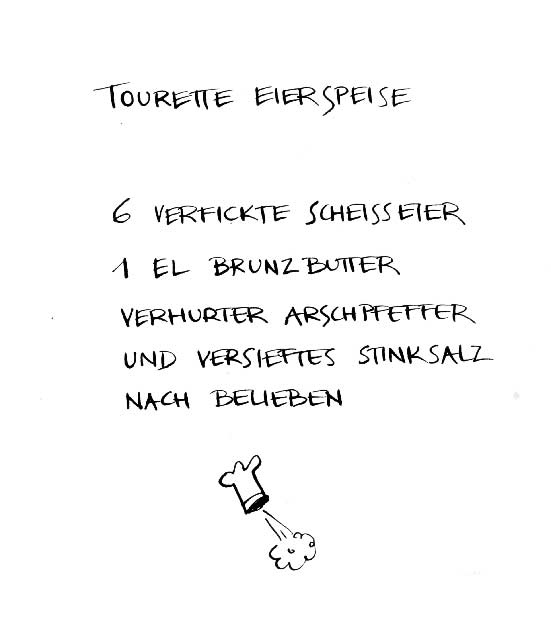 TOURETTE EIERSPEISE
6 VERFICKTE SCHEISSEIER
1 EL BRUNZBUTTER
VERHURTER ARSCHPFEFFER
UND VERSIEFTES STINKSALZ
NACH BELIEBEN